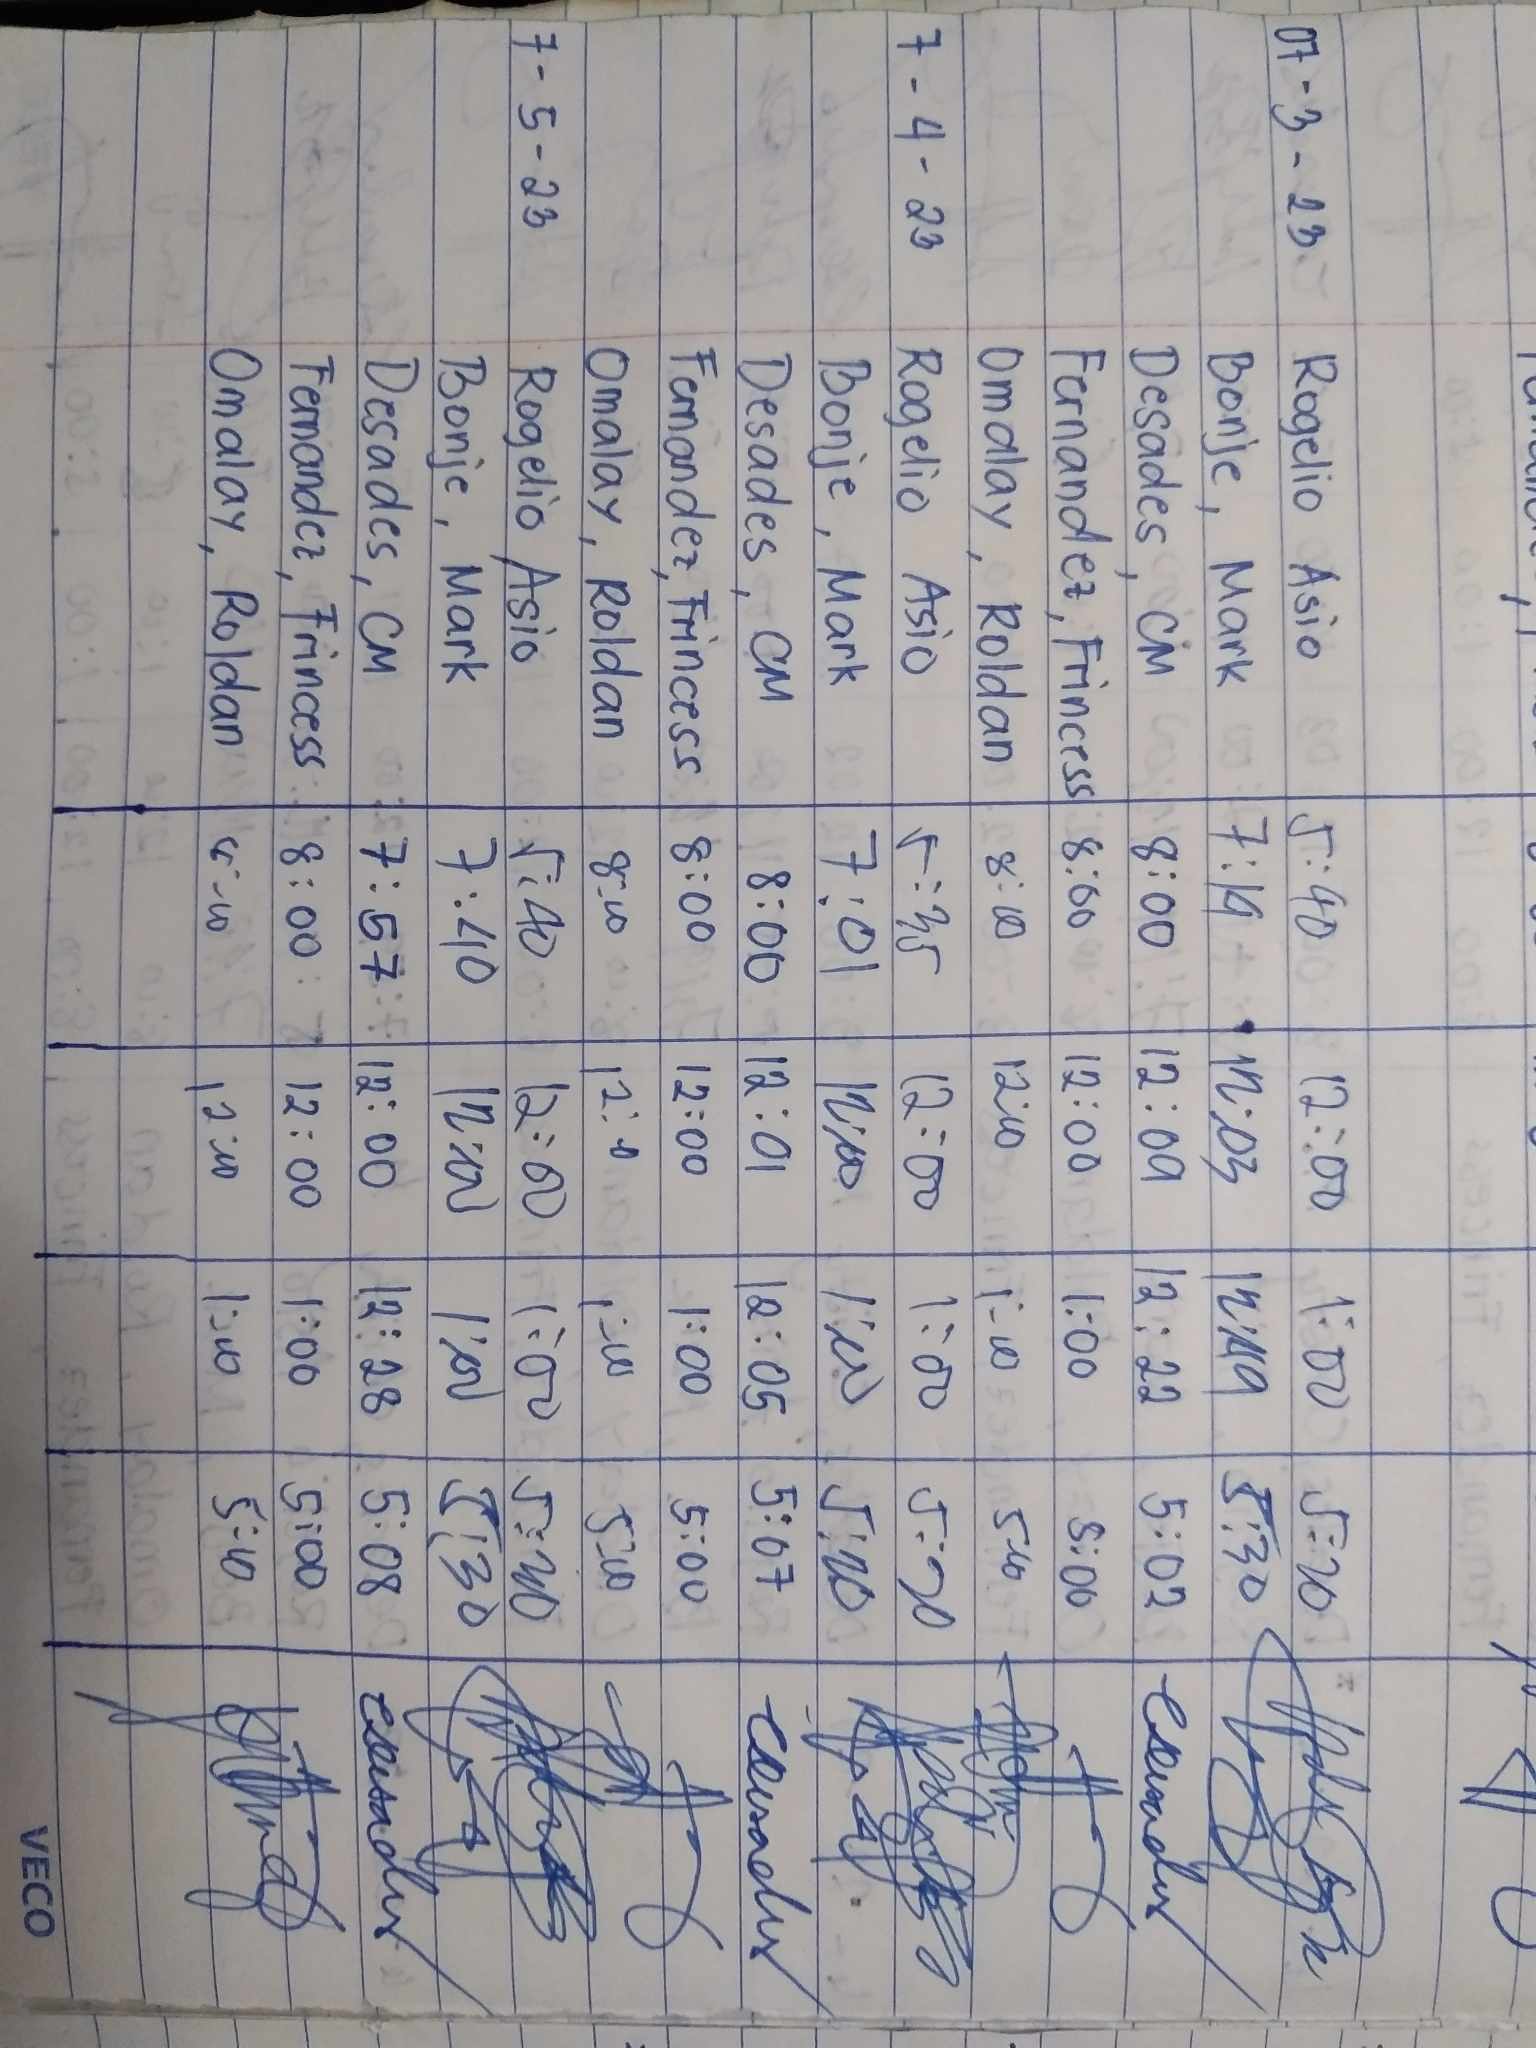 07-3-23 Rogelio Asio 5:40 12:00 1:00 5:20
Bonje, Mark 7:19 12:03 12:49 5:30
Desades, CM 8:00 12:09 12:22 5:02
Fernandez, Princess 8:00 12:00 1:00 5:00
Omalay, Roldan 8:10 12:10 1:10 5:10
7-4-23 Rogelio Asio 5:35 12:00 1:00 5:20
Bonje, Mark 7:01 12:00 1:00
Desades, CM 8:00 12:01 12:05 5:07
Fernandez, Princess 8:00 12:00 1:00 5:00
Omalay, Roldan 8:10 12:10 1:10 5:10
7-5-23 Rogelio Asio 5:40 12:00 1:00
Bonje, Mark 7:40 12:00 1:00 5:30
Desades, CM 7:57 12:00 12:28 5:08
Fernandez, Princess 8:00 12:00 1:00 5:00
Omalay, Roldan 8:10 12:10 1:10 5:10
VECO